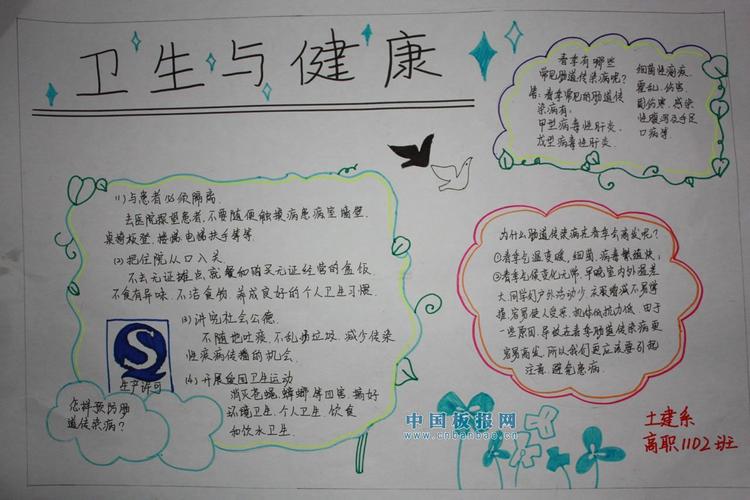 卫生与健康
春季有哪些
常见肠道传染病呢?
答:春季常见的肠道传
染病有:
甲型病毒性肝炎.
戊型病毒性肝炎.
细菌性痢疾.
霍乱.伤寒.
副伤寒.感染
性腹泻及手足
口病等.
(1)与患者必须隔离.
去医院探望患者,不要随便触摸病患病室墙壁.
桌椅板凳.楼梯电梯扶手等等.
(2)把住病从口入关.
不去无证摊点就餐和购买无证经营的盒饭.
不食有异味.不洁食物.养成良好的个人卫生习惯.
(3)讲究社会公德.
不随地吐痰.不乱扔垃圾.减少传染
性疾病传播的机会.
(4)开展爱国卫生运动
消灭苍蝇.蟑螂等四害.搞好
环境卫生.个人卫生.饮食
和饮水卫生.
生产许可
怎样预防肠
道传染病?
为什么肠道传染病在春季会高发呢?
①春季气温变暖,细菌.病毒繁殖快;
②春季气候变化无常.早晚室内外温差
大.同学们户外活动少.衣服增减不易
掌握.容易使人受凉.机体抵抗力低.由于
一些原因.导致在春季肠道传染病更
容易高发,所以我们更应该要引起
注意.避免患病.
中国板报网
www.cnbanbao.cn
土建系
高职1102班